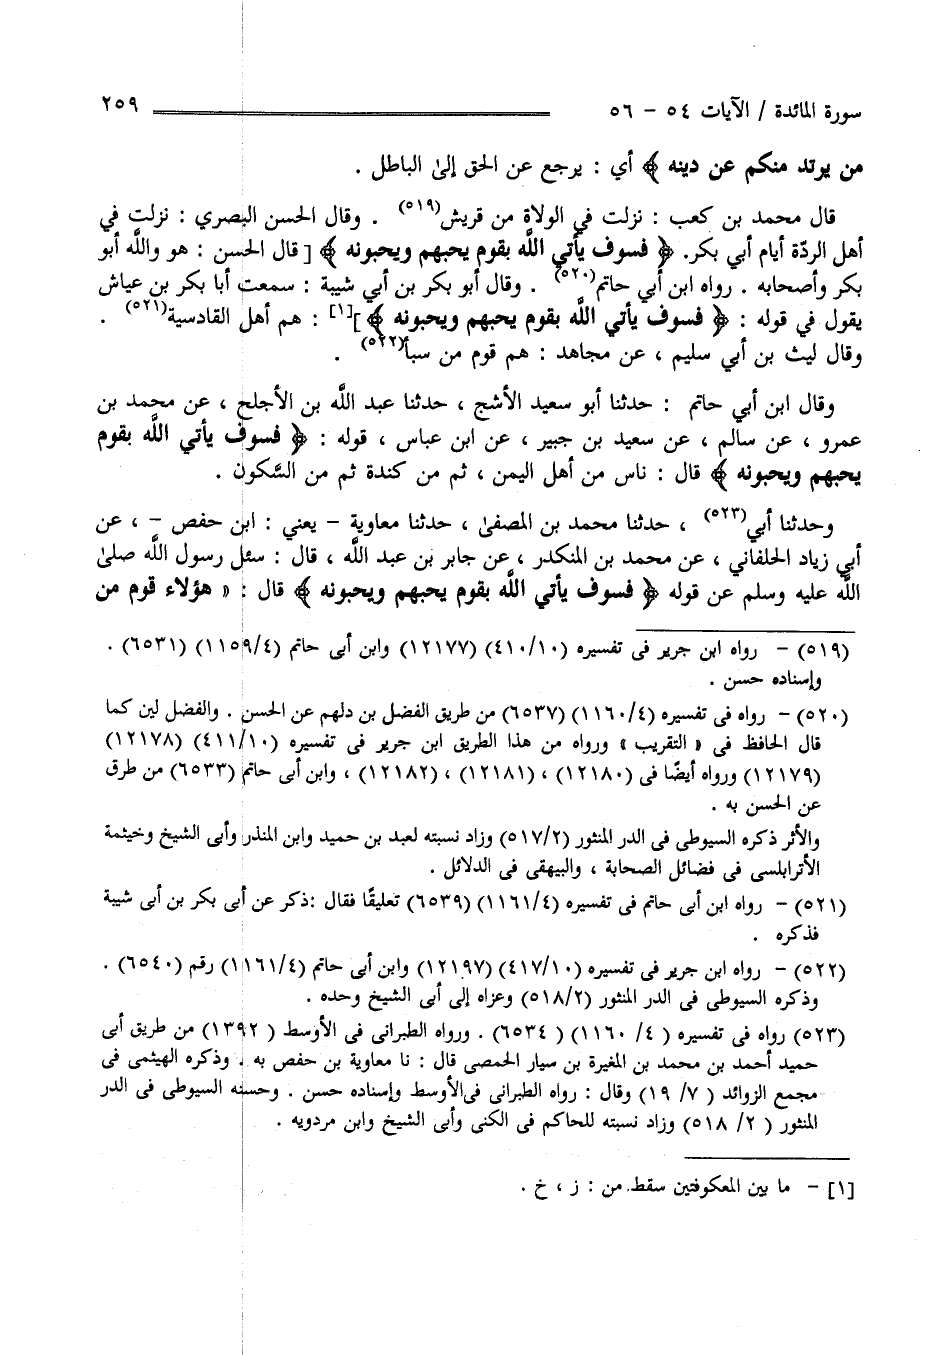 سورة المائدة / الآيات ٥٤ – ٥٦
٢٥٩
من يرتد منكم عن دينه ﴾ أي : يرجع عن الحق إلى الباطل .
قال محمد بن كعب : نزلت في الولاة من قريش(٥١٩) . وقال الحسن البصري : نزلت في
أهل الردّة أيام أبي بكر. ﴿ فسوف يأتي اللَّه بقوم يحبهم ويحبونه ﴾ [ قال الحسن : هو واللَّه أبو
بكر وأصحابه . رواه ابن أبي حاتم(٥٢٠) . وقال أبو بكر بن أبي شيبة : سمعت أبا بكر بن عياش
يقول في قوله : ﴿ فسوف يأتي اللَّه بقوم يحبهم ويحبونه ﴾][١] : هم أهل القادسية(٥٢١) .
وقال ليث بن أبي سليم ، عن مجاهد : هم قوم من سبأ(٥٢٢) .
وقال ابن أبي حاتم : حدثنا أبو سعيد الأشج ، حدثنا عبد اللَّه بن الأجلح ، عن محمد بن
عمرو ، عن سالم ، عن سعيد بن جبير ، عن ابن عباس ، قوله : ﴿ فسوف يأتي اللَّه بقوم
يحبهم ويحبونه ﴾ قال : ناس من أهل اليمن ، ثم من كندة ثم من السَّكون .
وحدثنا أبي(٥٢٣) ، حدثنا محمد بن المصفىٰ ، حدثنا معاوية – يعني : ابن حفص – ، عن
أبي زياد الحلفاني ، عن محمد بن المنكدر ، عن جابر بن عبد اللَّه ، قال : سئل رسول اللَّه صلىٰ
اللَّه عليه وسلم عن قوله ﴿ فسوف يأتي اللَّه بقوم يحبهم ويحبونه ﴾ قال : « هؤلاء قوم من
(٥١٩) – رواه ابن جرير فى تفسيره (٤١٠/١٠) (١٢١٧٧) وابن أبى حاتم (١١٥٩/٤) (٦٥٣١) .
وإسناده حسن .
(٥٢٠) – رواه فى تفسيره (١١٦٠/٤) (٦٥٣٧) من طريق الفضل بن دلهم عن الحسن . والفضل لين كما
قال الحافظ فى « التقريب » ورواه من هذا الطريق ابن جرير فى تفسيره (٤١١/١٠) (١٢١٧٨)
(١٢١٧٩) ورواه أيضًا فى (١٢١٨٠) ، (١٢١٨١) ، (١٢١٨٢) ، وابن أبى حاتم (٦٥٣٣) من طرق
عن الحسن به .
والأثر ذكره السيوطى فى الدر المنثور (٥١٧/٢) وزاد نسبته لعبد بن حميد وابن المنذر وأبى الشيخ وخيثمة
الأترابلسى فى فضائل الصحابة ، والبيهقى فى الدلائل .
(٥٢١) – رواه ابن أبى حاتم فى تفسيره (١١٦١/٤) (٦٥٣٩) تعليقًا فقال :ذكر عن أبى بكر بن أبى شيبة
فذكره .
(٥٢٢) – رواه ابن جرير فى تفسيره (٤١٧/١٠) (١٢١٩٧) وابن أبى حاتم (١١٦١/٤) رقم (٦٥٤٠) .
وذكره السيوطى فى الدر المنثور (٥١٨/٢) وعزاه إلى أبى الشيخ وحده .
(٥٢٣) رواه فى تفسيره ( ٤/ ١١٦٠) ( ٦٥٣٤) . ورواه الطبرانى فى الأوسط ( ١٣٩٢) من طريق أبى
حميد أحمد بن محمد بن المغيرة بن سيار الحمصى قال : نا معاوية بن حفص به . وذكره الهيثمى فى
مجمع الزوائد ( ٧/ ١٩) وقال : رواه الطبرانى فى الأوسط وإسناده حسن . وحسنه السيوطى فى الدر
المنثور ( ٢/ ٥١٨) وزاد نسبته للحاكم فى الكنى وأبى الشيخ وابن مردويه .
[١] – ما بين المعكوفتين سقط من : ز ، خ .